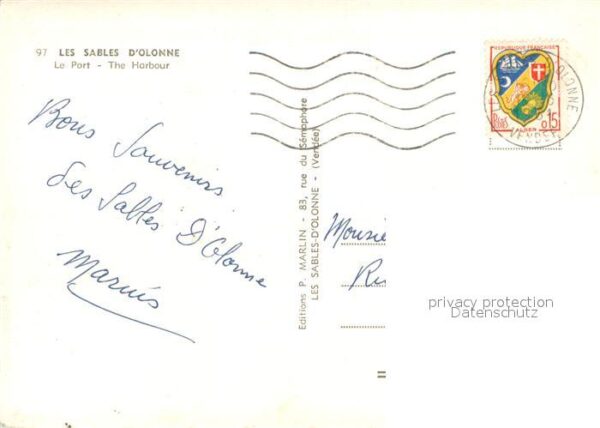 97 LES SABLES D'OLONNE
Le Port - The Harbour
Bons Souvenirs
des Sables D'Olonne
Editions P. MARLIN - 83, rue du Sémaphore
LES SABLES-D'OLONNE - (Vendée)
REPUBLIQUE FRANÇAISE
POSTES 0,15
ALGER
OLONNE
VENDEE
Monsie
Ru
privacy protection
Datenschutz